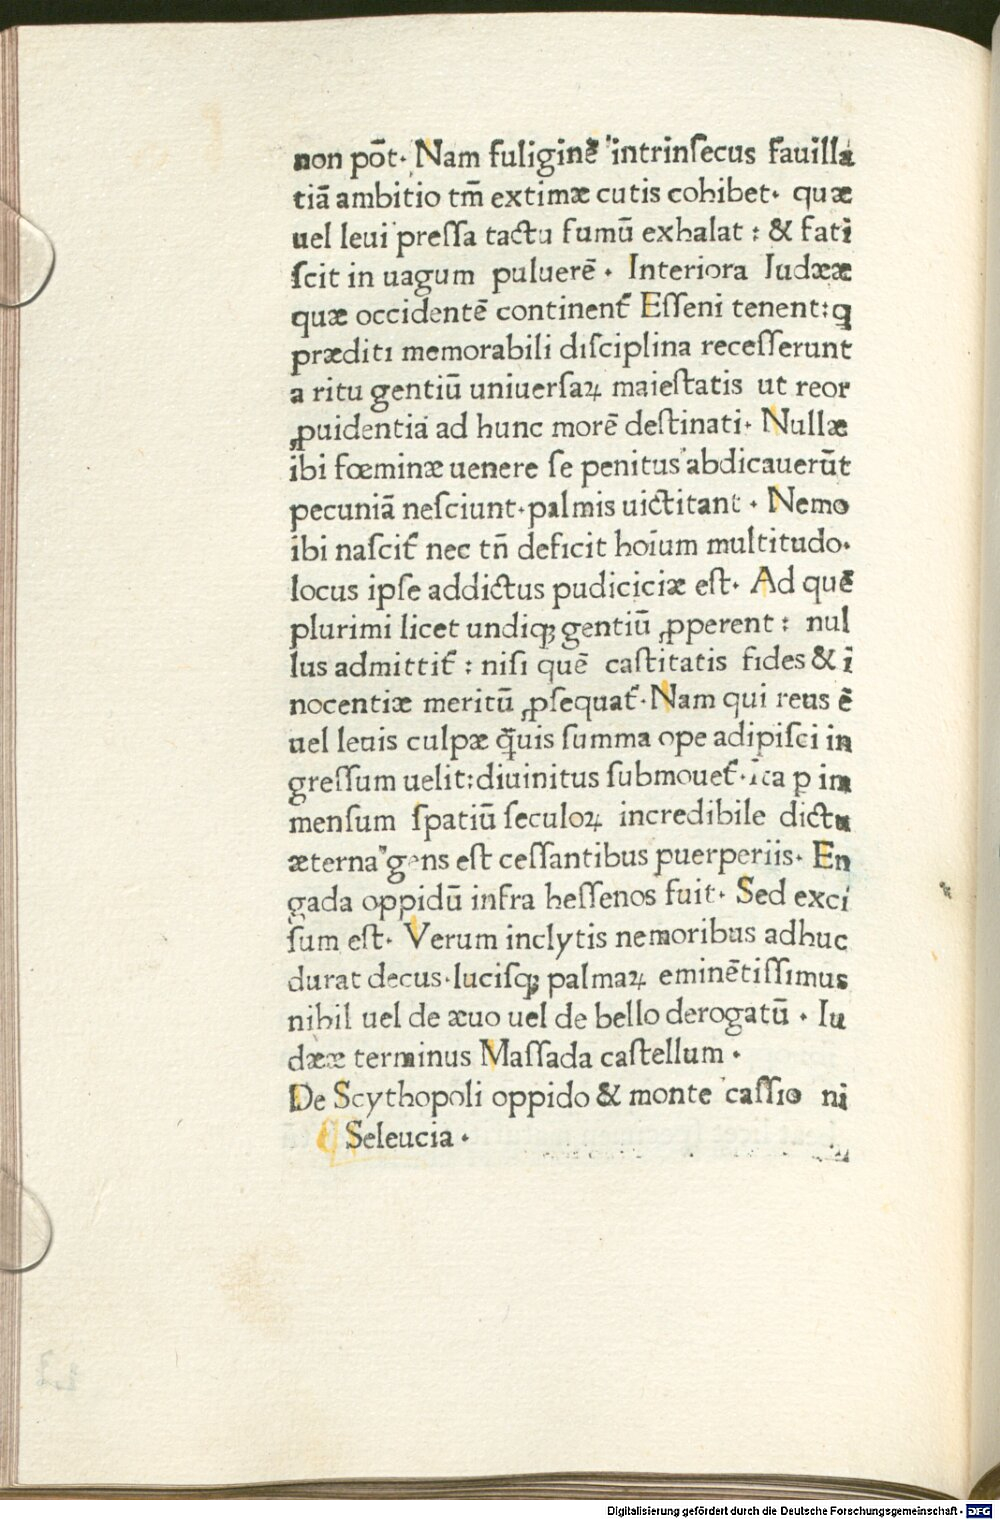 non põt· Nam fuliginẽ intrinſecus fauilla
tiã ambitio tm̃ extimæ cutis cohibet· quæ
uel leui preſſa tactu fumũ exhalat : & fati
ſcit in uagum puluerẽ · Interiora Iudææ
quæ occidentẽ continent᷑ Eſſeni tenent: ꝗ
præditi memorabili diſciplina receſſerunt
a ritu gentiũ uniuerſaꝝ maieſtatis ut reor
ꝓuidentia ad hunc morẽ deſtinati· Nullæ
ibi fœminæ uenere ſe penitus abdicauerũt
pecuniã neſciunt·palmis uictitant · Nemo
ibi naſcit᷑ nec tñ deficit hoĩum multitudo·
locus ipſe addictus pudiciciæ eſt· Ad quẽ
plurimi licet undiqꝫ gentiũ ꝓperent : nul
lus admittit᷑ : niſi quẽ caſtitatis fides & ĩ
nocentiæ meritũ ꝓſequat᷑·Nam qui reus ẽ
uel leuis culpæ q̃uis ſumma ope adipiſci in
greſſum uelit:diuinitus ſubmouet᷑·Ita ꝑ im
menſum ſpatiũ ſeculoꝝ incredibile dictu
æterna gens eſt ceſſantibus puerperiis· En
gada oppidũ infra heſſenos fuit· Sed exci
ſum eſt· Verum inclytis nemoribus adhuc
durat decus·luciſqꝫ palmaꝝ eminẽtiſſimus
nihil uel de æuo uel de bello derogatũ · Iu
dææ terminus Maſſada caſtellum ·
De Scythopoli oppido & monte caſſio ni
Seleucia ·
Digitalisierung gefördert durch die Deutsche Forschungsgemeinschaft - DFG